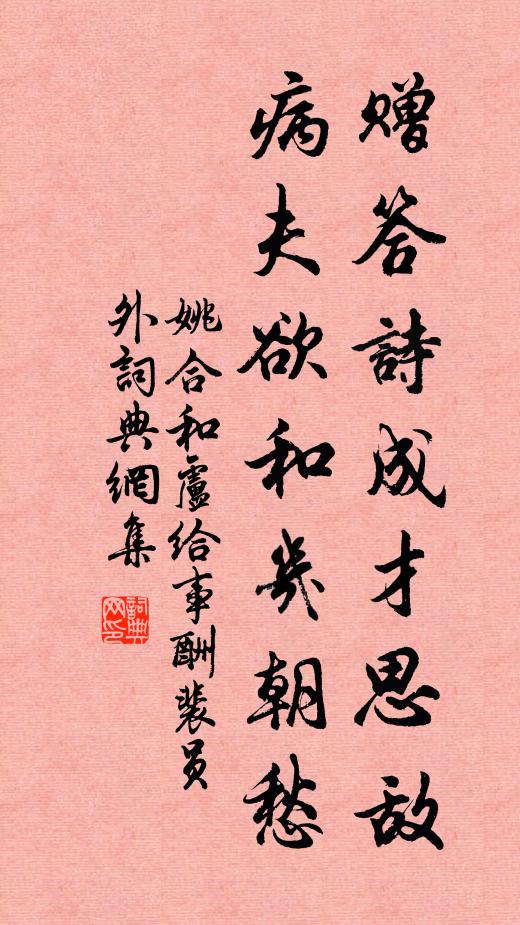 赠答詩成才思敌
病夫欲和几朝愁
姚合和盧给事酬裴员
外詞典網集
詞典网印